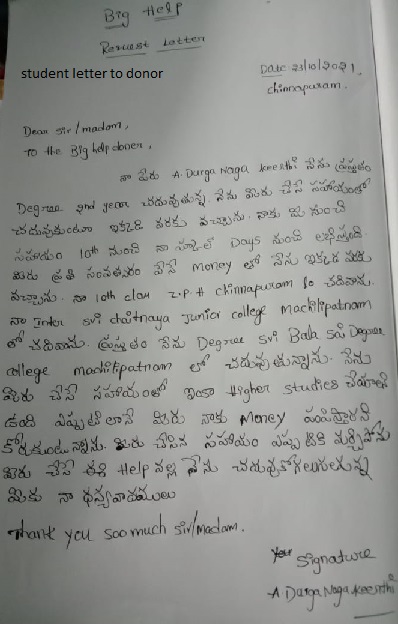 Big Help
Reviest Letter
student letter to donor
Date 23/10/2021.
chinnapuram.
Dear Sir/madam,
To the Big help doner,
నా పేరు A. Durga Naga keerthi నేను ప్రస్తుతం
Degree 2nd year చదువుతున్న. నేను మీరు చేసే సహాయంతో
చదువుకుంటూ ఇక్కడి వరకు వచ్చాను. నాకు ఈ మంచి
సహాయం 10th నుంచి నా స్కూల్ Days నుంచి లభిస్తుంది.
మీరు ప్రతి సంవత్సరం వేసే Money తో నేను ఇక్కడి వరకు
వచ్చాను. నా 10th class z.p.H chinnapuram లో చదివాను.
నా Inter sri chaitnaya Junior college machilipatnam
లో చదివాను. ప్రస్తుతం నేను Degree sri Bala sai Degree
college machilipatnam లో చదువుతున్నాను. నేను
మీరు చేసే సహాయంతో ఇంకా Higher studies చేయాలని
ఉంది ఎప్పటిలానే మీరు నాకు Money పంపిస్తారని
కోరుకుంటున్నాను. మీరు చేసిన సహాయం ఎప్పటికి మర్చిపోను
మీరు చేసే ఈ Help వల్ల నేను చదువుకోగలుగుతున్న
మీకు నా ధన్యవాదములు
Thank you soo much sir/madam.
Your Signature
A Durga Naga keerthi